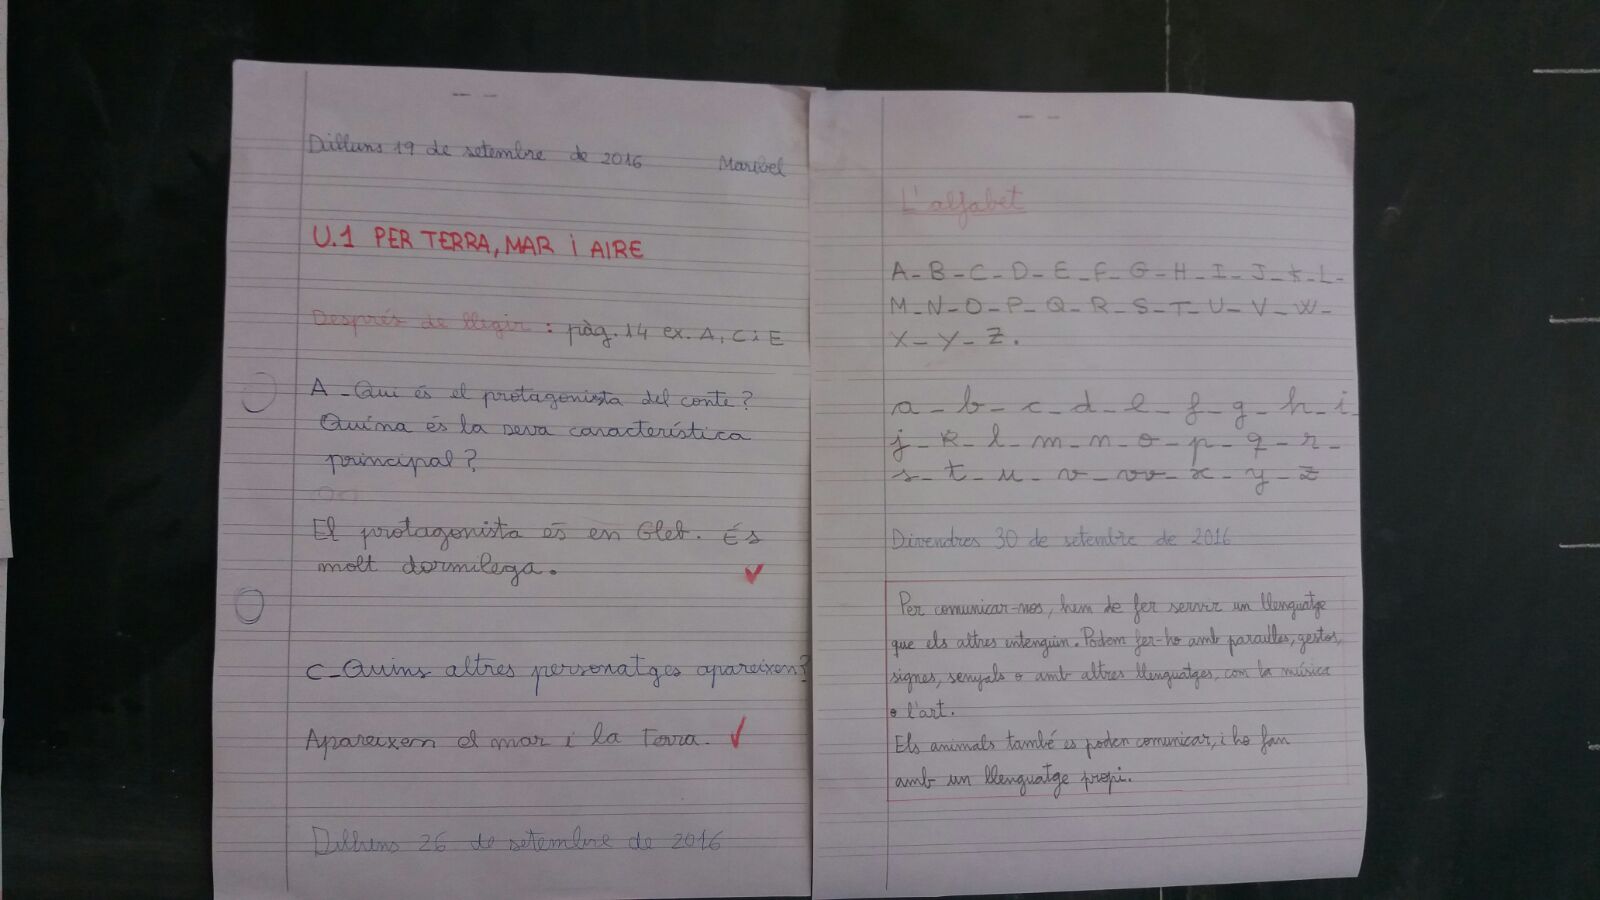 Dilluns 19 de setembre de 2016 Maribel
U.1 PER TERRA, MAR i AIRE
Després de llegir : pàg. 14 ex. A, C i E
A - Qui és el protagonista del conte?
Quina és la seva característica
principal?
El protagonista és en Glet. És
molt dormilega.
C - Quins altres personatges apareixen?
Apareixen el mar i la Terra.
Dilluns 26 de setembre de 2016
L'alfabet
A - B - C - D - E - F - G - H - I - J - K - L -
M - N - O - P - Q - R - S - T - U - V - W -
X - Y - Z.
a - b - c - d - e - f - g - h - i -
j - k - l - m - n - o - p - q - r -
s - t - u - v - w - x - y - z
Divendres 30 de setembre de 2016
Per comunicar-nos, hem de fer servir un llenguatge
que els altres entenguin. Podem fer-ho amb paraules, gestos,
signes, senyals o amb altres llenguatges, com la música
o l'art.
Els animals també es poden comunicar, i ho fan
amb un llenguatge propi.